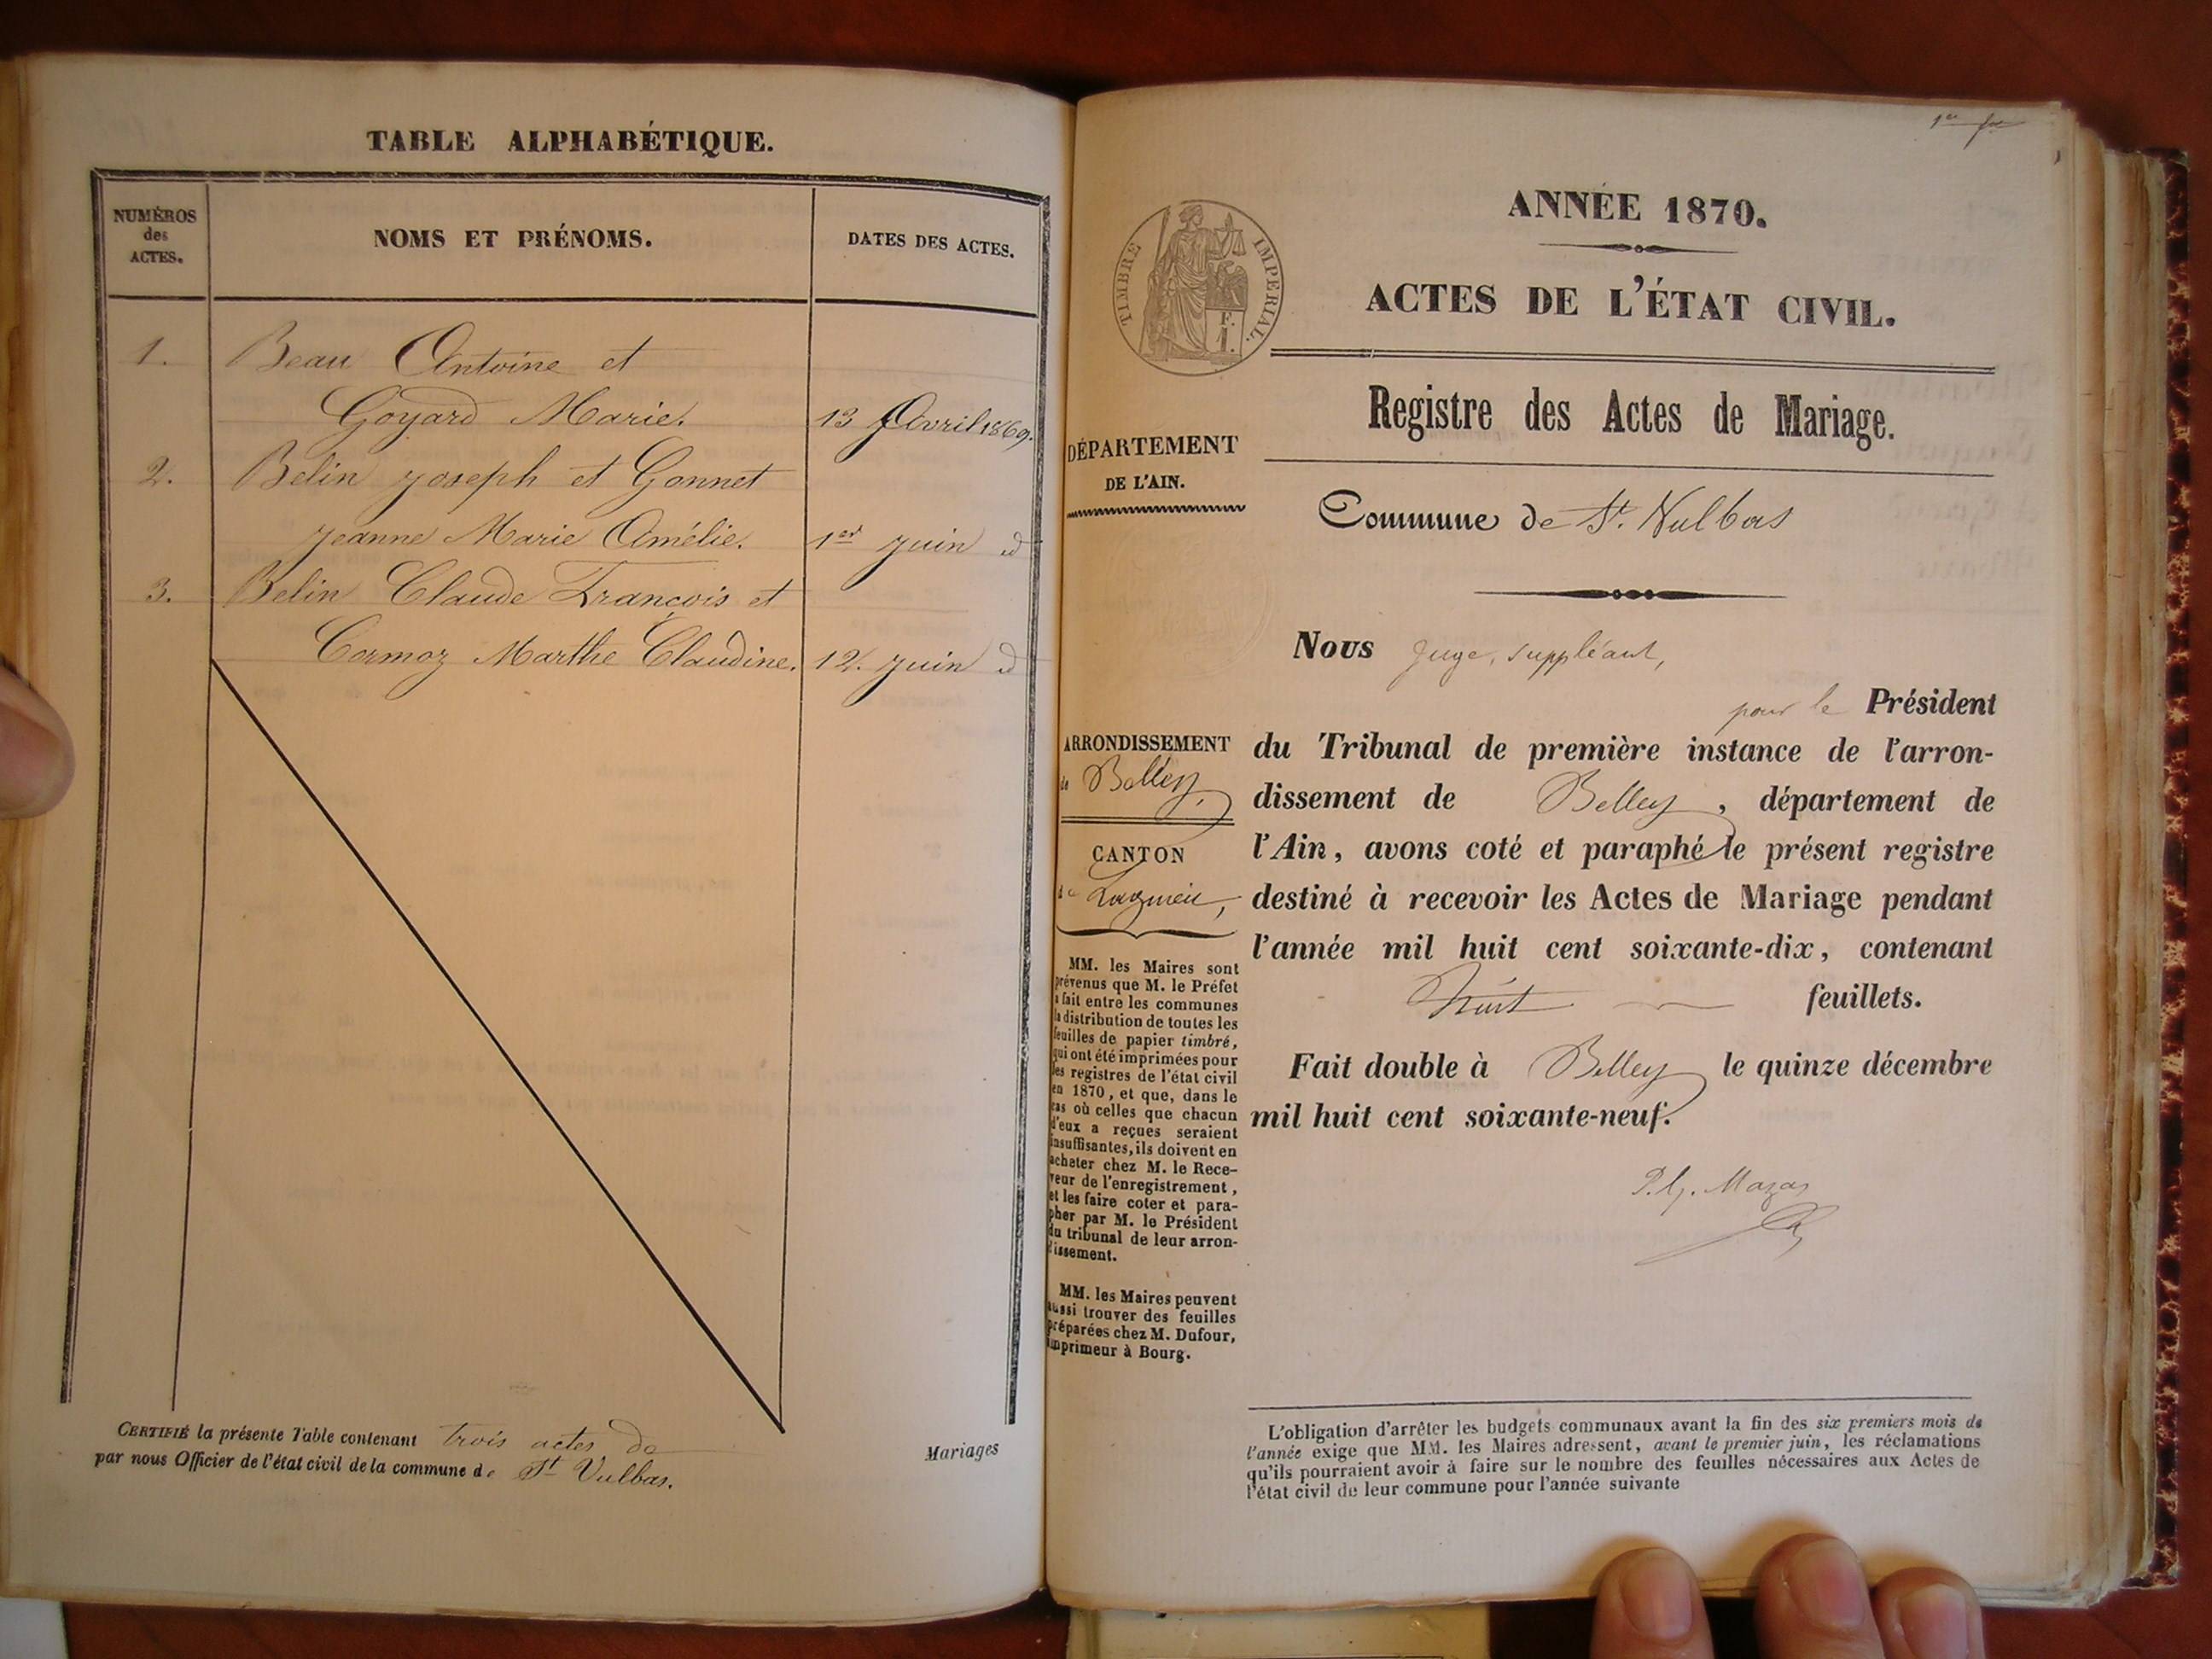 TABLE ALPHABÉTIQUE.
NUMÉROS
des
ACTES.
NOMS ET PRÉNOMS.
DATES DES ACTES.
1. Beau Antoine et
Goyard Marie. 13 Avril 1869.
2. Belin Joseph et Gonnet
Jeanne Marie Amélie. 1er juin d
3. Belin Claude François et
Cormoz Marthe Claudine. 12. juin d
CERTIFIÉ la présente Table contenant trois actes de
par nous Officier de l'état civil de la commune de St Vulbas.
Mariages
1er
TIMBRE IMPÉRIAL.
F.
1.
ANNÉE 1870.
ACTES DE L'ÉTAT CIVIL.
Registre des Actes de Mariage.
DÉPARTEMENT
DE L'AIN.
Commune de St. Vulbas
Nous juge, suppléant,
pour le Président
ARRONDISSEMENT
de Belley,
du Tribunal de première instance de l'arron-
dissement de Belley, département de
l'Ain, avons coté et paraphé le présent registre
destiné à recevoir les Actes de Mariage pendant
l'année mil huit cent soixante-dix, contenant
huit feuillets.
Fait double à Belley le quinze décembre
mil huit cent soixante-neuf.
Mazas
CANTON
de Lagnieu,
MM. les Maires sont
prévenus que M. le Préfet
a fait entre les communes
la distribution de toutes les
feuilles de papier timbré,
qui ont été imprimées pour
les registres de l'état civil
en 1870, et que, dans le
cas où celles que chacun
d'eux a reçues seraient
insuffisantes, ils doivent en
acheter chez M. le Rece-
veur de l'enregistrement,
et les faire coter et para-
pher par M. le Président
du tribunal de leur arron-
dissement.
MM. les Maires peuvent
aussi trouver des feuilles
préparées chez M. Dufour,
imprimeur à Bourg.
L'obligation d'arrêter les budgets communaux avant la fin des six premiers mois de
l'année exige que MM. les Maires adressent, avant le premier juin, les réclamations
qu'ils pourraient avoir à faire sur le nombre des feuilles nécessaires aux Actes de
l'état civil de leur commune pour l'année suivante